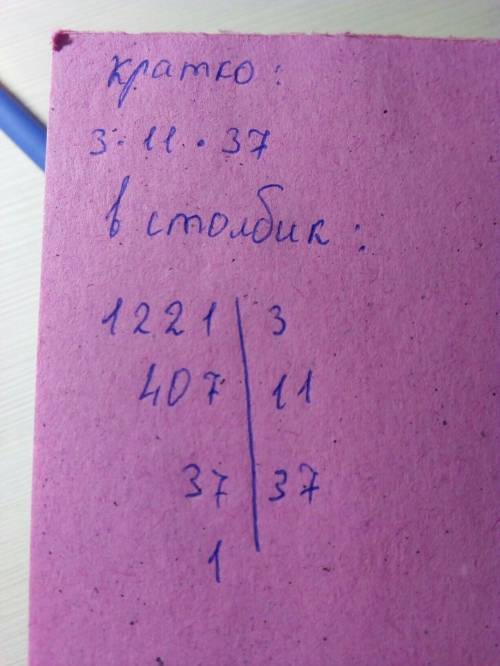 кратко:
3·11·37
в столбик:
1221 | 3
407 | 11
37 | 37
1